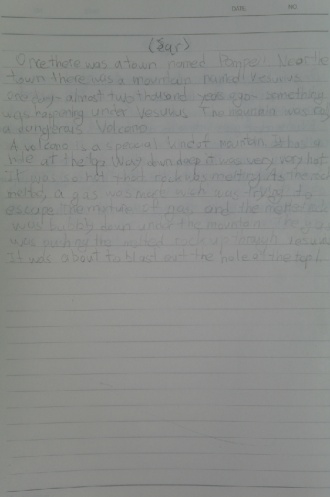 DATE NO
(Ear)
Once there was a town named Pompeii Near the
town there was a mountain named Vesuvius
one day almost two thousand years ago something
was happening under Vesuvius. The mountain was really
a dangerous Volcano.
A volcano is a special kind of mountain it has a
hole at the top Way down deep it was very very hot
it was so hot that rock was melting As the rock
melted, a gas was made wich was trying to
escape the mixture of gas and the melted rock
was down under the mountain The gas
was pushing the melted rock up through Vesuvius
It was about to blast out the hole at the top!